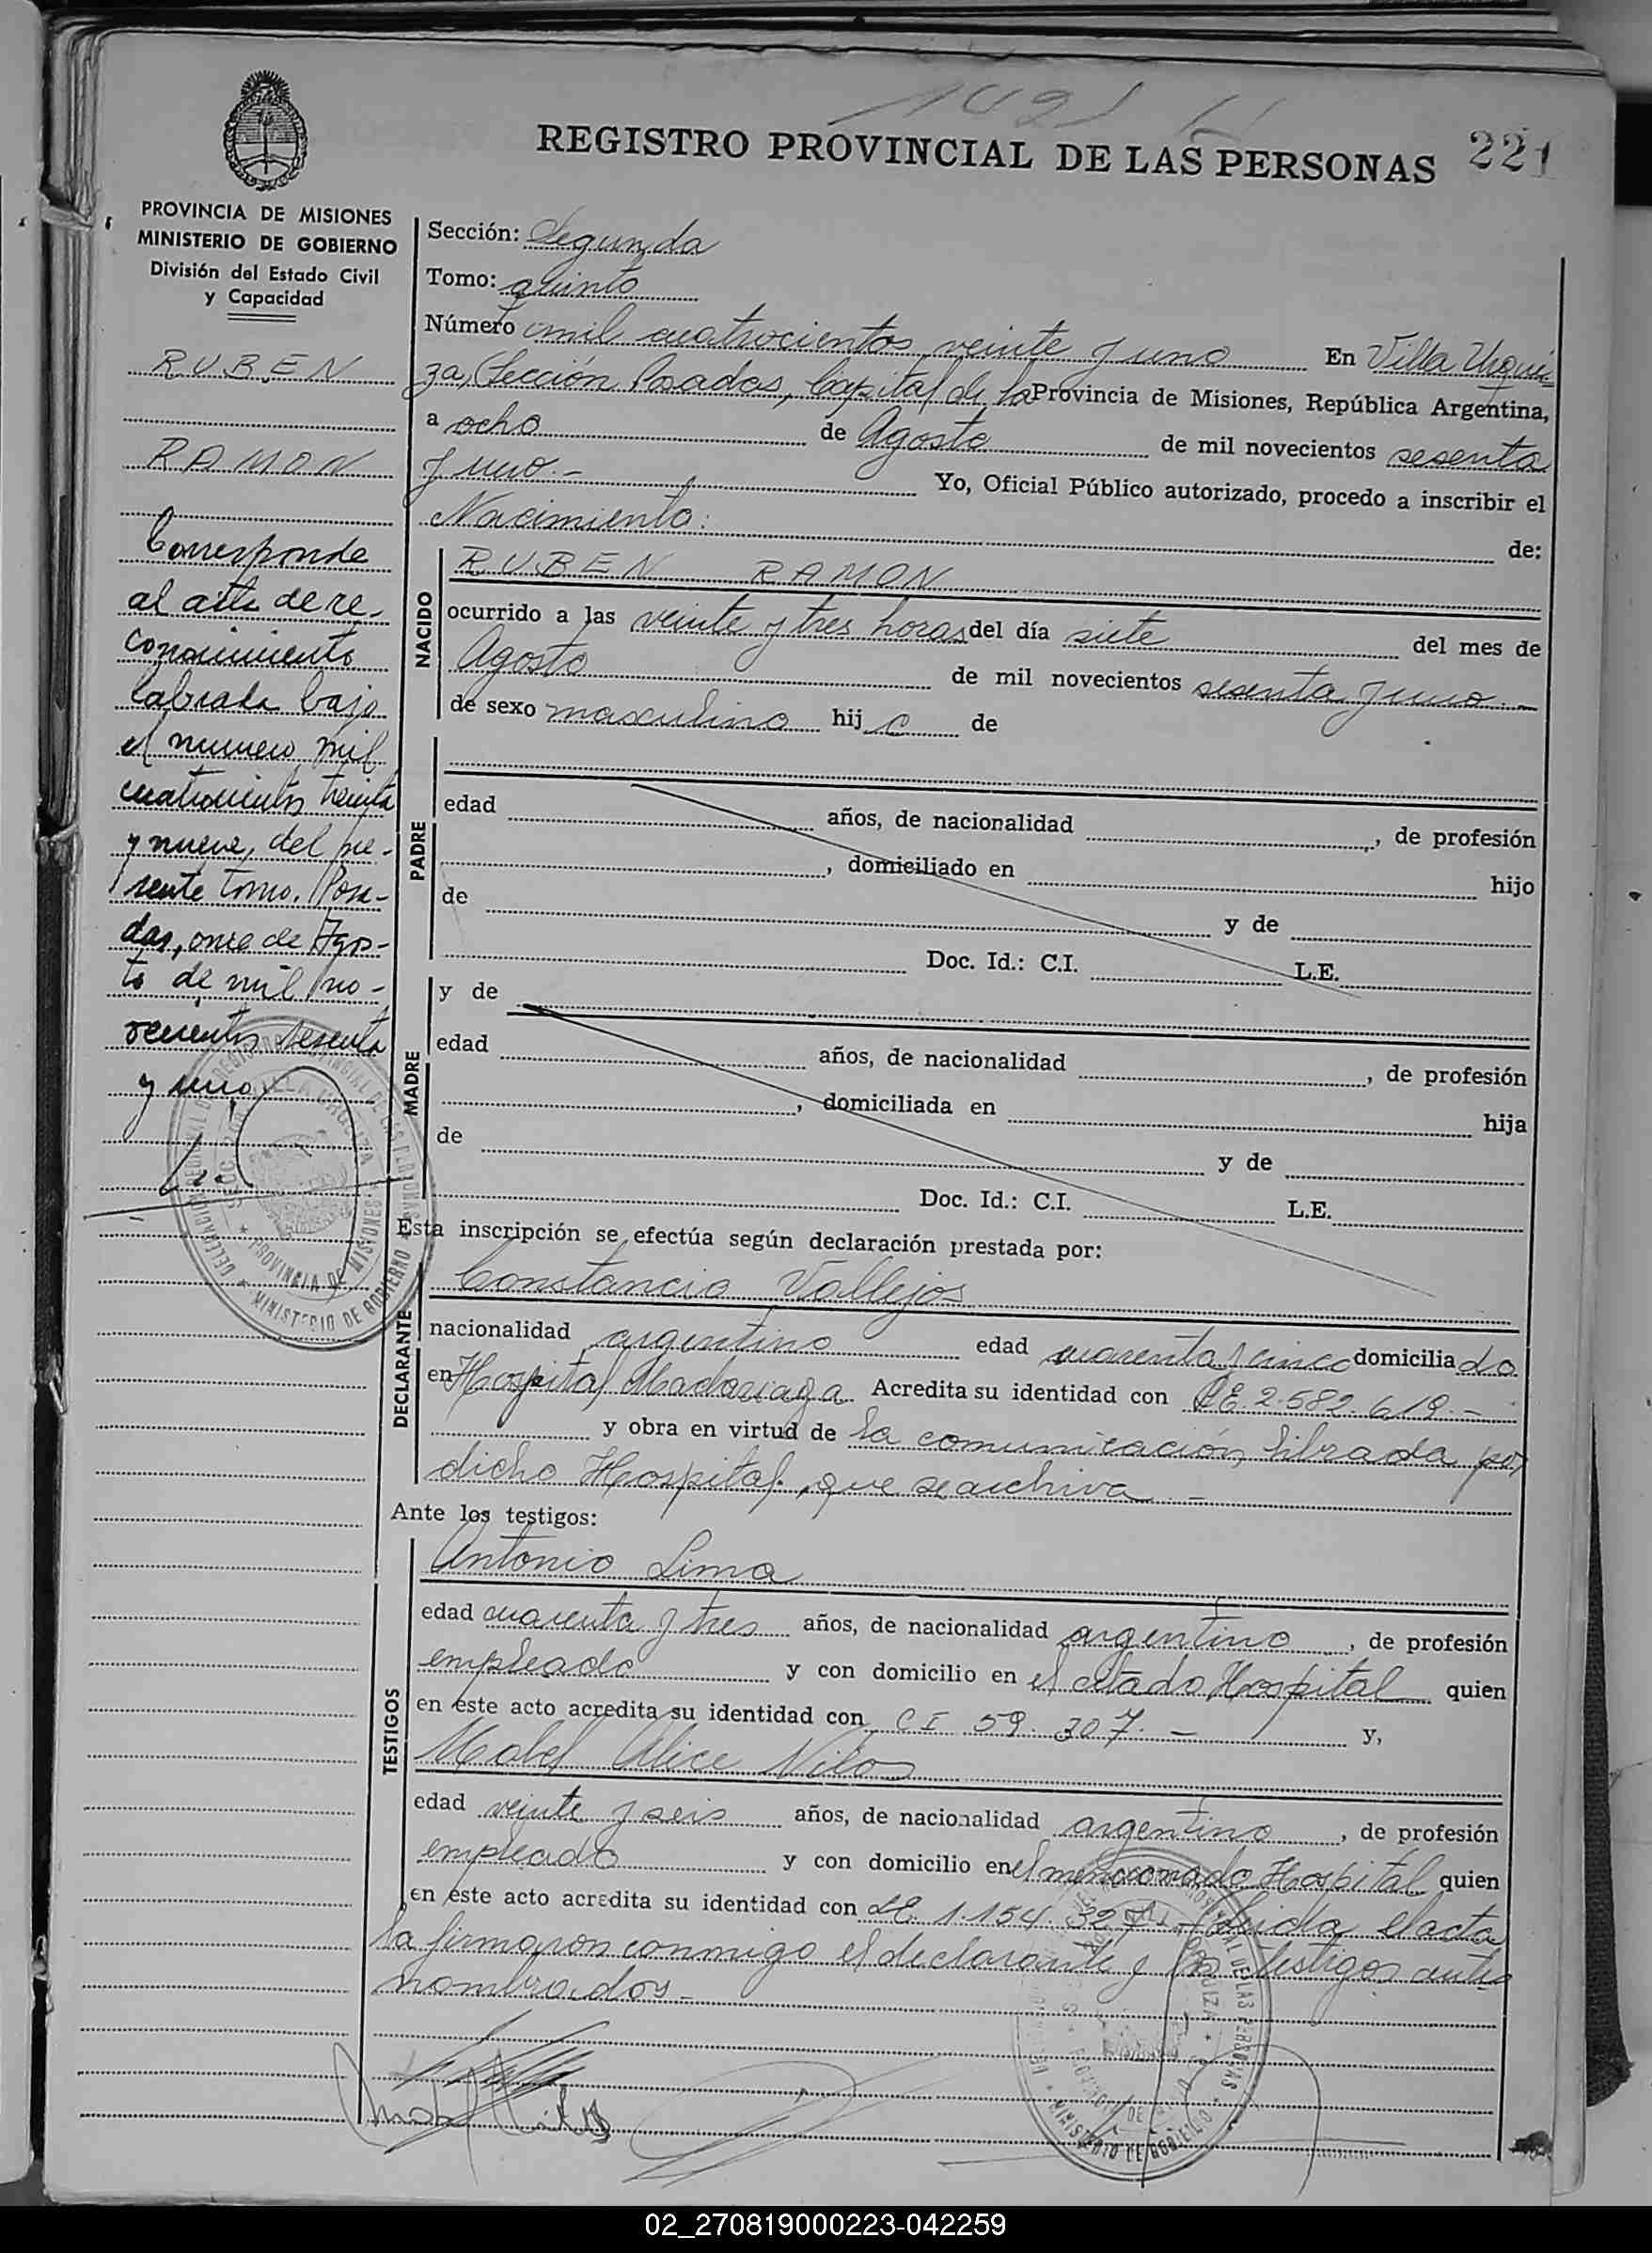 1421
REGISTRO PROVINCIAL DE LAS PERSONAS 221
PROVINCIA DE MISIONES
MINISTERIO DE GOBIERNO
División del Estado Civil
y Capacidad
RUBEN
RAMON
Corresponde
al acta de re-
conocimiento
labrada bajo
el numero mil
cuatrocientos treinta
y nueve, del pre-
sente tomo. Posa-
das, once de Agos-
to de mil no-
vecientos sesenta
y uno
Sección: Segunda
Tomo: quinto
Número mil cuatrocientos veinte y uno En Villa Urqui
za, Sección Posadas, Capital de la Provincia de Misiones, República Argentina,
a ocho de Agosto de mil novecientos sesenta
y uno.- Yo, Oficial Público autorizado, procedo a inscribir el
Nacimiento: de:
NACIDO
RUBEN RAMON
ocurrido a las veinte y tres horas del día siete del mes de
Agosto de mil novecientos sesenta y uno.-
de sexo masculino hijo de
PADRE
edad años, de nacionalidad , de profesión
, domiciliado en hijo
de y de
Doc. Id.: C.I. L.E.
MADRE
y de
edad años, de nacionalidad , de profesión
, domiciliada en hija
de y de
Doc. Id.: C.I. L.E.
Esta inscripción se efectúa según declaración prestada por:
DECLARANTE
Constancio Vallejos
nacionalidad argentino edad cuarenta y cinco domiciliado
en Hospital Madariaga Acredita su identidad con LE 2.582.619.-
y obra en virtud de la comunicación librada por
dicho Hospital, que se archiva.-
Ante los testigos:
TESTIGOS
Antonio Lima
edad cuarenta y tres años, de nacionalidad argentino, de profesión
empleado y con domicilio en el citado Hospital quien
en este acto acredita su identidad con CI 59.307.- y,
Mabel Alice
edad veinte y seis años, de nacionalidad argentino, de profesión
empleado y con domicilio en el mencionado Hospital quien
en este acto acredita su identidad con LC. 1.154.327.- Leida el acta
la firmaron conmigo el declarante y los testigos antes
nombrados.-
MINISTERIO DE GOBIERNO
PROVINCIA DE MISIONES
02_270819000223-042259